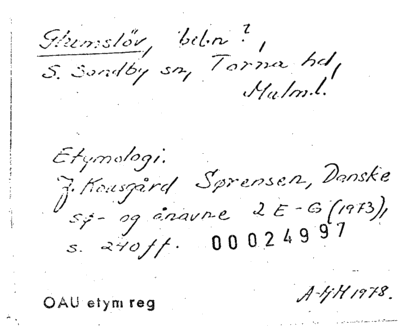 Glumslöv, beb.n?,
S. Sandby sn, Torna hd,
Malm.l.
Etymologi.
J. Kousgård Sørensen, Danske
sø- og ånavne 2 E-G (1973),
s. 240ff. 00024997
OAU etym reg A-HH 1978.